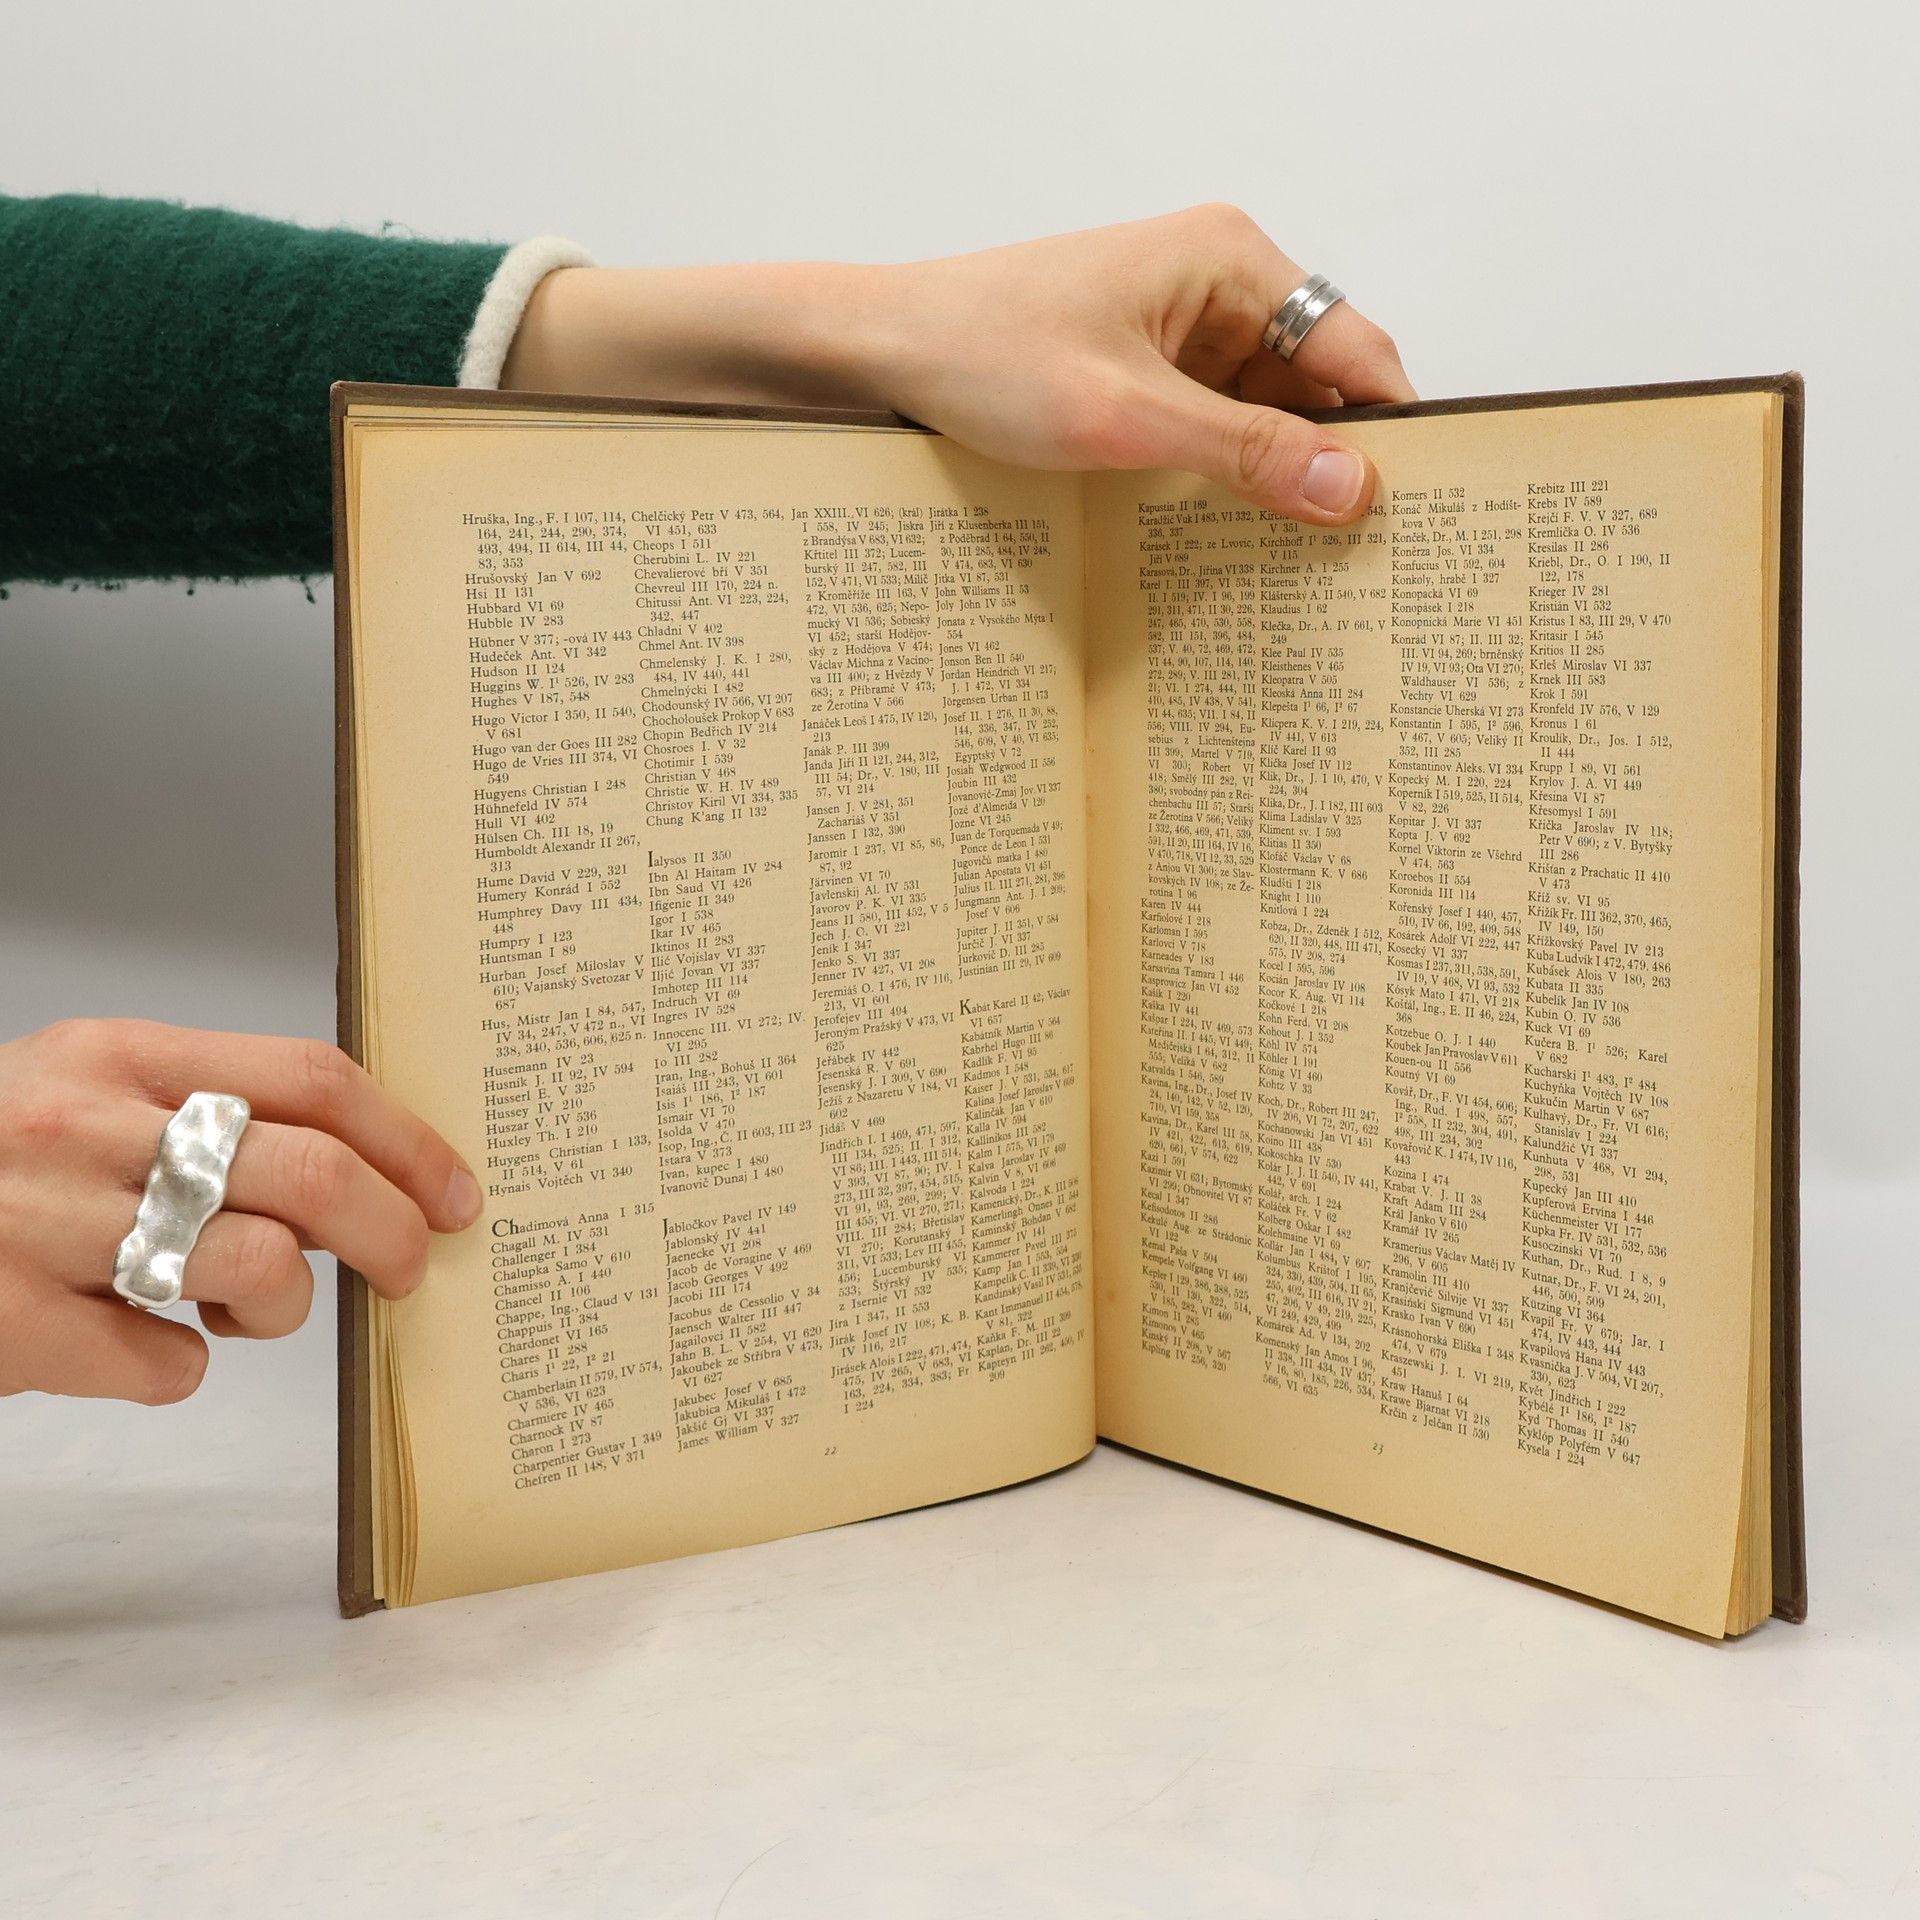 Hruška, Ing., F. I 107, 114,
164, 241, 244, 290, 374,
493, 494, II 614, III 44,
83, 353
Hrušovský Jan V 692
Hsi II 131
Hubbard VI 69
Hubble IV 283
Hübner V 377; -ová IV 443
Hudeček Ant. VI 342
Hudson II 124
Huggins W. I¹ 526, IV 283
Hughes V 187, 548
Hugo Victor I 350, II 540,
V 681
Hugo van der Goes III 282
Hugo de Vries III 374, VI
549
Hugyens Christian I 248
Hühnefeld IV 574
Hull VI 402
Hülsen Ch. III 18, 19
Humboldt Alexandr II 267,
313
Hume David V 229, 321
Humery Konrád I 552
Humphrey Davy III 434,
448
Humpry I 123
Huntsman I 89
Hurban Josef Miloslav V
610; Vajanský Svetozar V
687
Hus, Mistr Jan I 84, 547,
IV 34, 247, V 472 n., VI
338, 340, 536, 606, 625 n.
Husemann IV 23
Husník J. II 92, IV 594
Husserl E. V 325
Hussey IV 210
Huszar V. IV 536
Huxley Th. I 210
Huygens Christian I 133,
II 514, V 61
Hynais Vojtěch VI 340
Chadimová Anna I 315
Chagall M. IV 531
Challenger I 384
Chalupka Samo V 610
Chamisso A. I 440
Chancel II 106
Chappe, Ing., Claud V 131
Chappuis II 384
Chardonet VI 165
Chares II 288
Charis I¹ 22, I² 21
Chamberlain II 579, IV 574,
V 536, VI 623
Charmiere IV 465
Charnock IV 87
Charon I 273
Charpentier Gustav I 349
Chefren II 148, V 371
Chelčický Petr V 473, 564,
VI 451, 633
Cheops I 511
Cherubini L. IV 221
Chevalierové bří V 351
Chevreul III 170, 224 n.
Chitussi Ant. VI 223, 224,
342, 447
Chladni V 402
Chmel Ant. IV 398
Chmelenský J. K. I 280,
484, IV 440, 441
Chmelnýcki I 482
Chodounský IV 566, VI 207
Chocholoušek Prokop V 683
Chopin Bedřich IV 214
Chosroes I. V 32
Chotimir I 539
Christian V 468
Christie W. H. IV 489
Christov Kiril VI 334, 335
Chung K'ang II 132
Ialysos II 350
Ibn Al Haitam IV 284
Ibn Saud VI 426
Ifigenie II 349
Igor I 538
Ikar IV 465
Iktinos II 283
Ilić Vojislav VI 337
Iljić Jovan VI 337
Imhotep III 114
Indruch VI 69
Ingres IV 528
Innocenc III. VI 272; IV.
VI 295
Io III 282
Iran, Ing., Bohuš II 364
Isaiáš III 243, VI 601
Isis I¹ 186, I² 187
Ismair VI 70
Isolda V 470
Isop, Ing., Č. II 603, III 23
Istara V 373
Ivan, kupec I 480
Ivanovič Dunaj I 480
Jabločkov Pavel IV 149
Jablonský IV 441
Jaenecke VI 208
Jacob de Voragine V 469
Jacob Georges V 492
Jacobi III 174
Jacobus de Cessolio V 34
Jaensch Walter III 447
Jagailovci II 582
Jahn B. L. V 254, VI 620
Jakoubek ze Stříbra V 473,
VI 627
Jakubec Josef V 685
Jakubica Mikuláš I 472
Jakšić Gj VI 337
James William V 327
Jan XXIII. VI 626; (král)
I 558, IV 245; Jiskra
z Brandýsa V 683, VI 632;
Křtitel III 372; Lucem-
burský II 247, 582, III
152, V 471, VI 533; Milíč
z Kroměříže III 163, V
472, VI 536, 625; Nepo-
mucký VI 536; Sobieský
VI 452; starší Hodějov-
ský z Hodějova V 474;
Václav Michna z Vacino-
va III 400; z Hvězdy V
683; z Příbramě V 473;
ze Žerotína V 566
Janáček Leoš I 475, IV 120,
213
Janák P. III 399
Janda Jiří II 121, 244, 312,
III 54; Dr., V. 180, III
57, VI 214
Jansen J. V 281, 351
Zachariáš V 351
Janssen I 132, 390
Jaromír I 237, VI 85, 86,
87, 92
Järvinen VI 70
Javlenskij Al. IV 531
Javorov P. K. VI 335
Jeans II 580, III 452, V 5
Jech J. O. VI 221
Jeník I 347
Jenko S. VI 337
Jenner IV 427, VI 208
Jeremiáš O. I 476, IV 116,
213, VI 601
Jerofejev III 494
Jeroným Pražský V 473, VI
625
Jeřábek IV 442
Jesenská R. V 691
Jesenský J. I 309, V 690
Ježíš z Nazaretu V 184, VI
602
Jidáš V 469
Jindřich I. I 469, 471, 597,
III 134, 525; II. I 312,
VI 86; III. I 443, III 514,
V 393, VI 87, 90; IV. I
273, III 32, 397, 454, 515,
VI 91, 93, 269, 299; V.
III 455; VI. VI 270, 271;
VIII. III 284; Břetislav
VI 270; Korutanský I
311, VI 533; Lev III 455,
456; Lucemburský VI
533; Štýrský IV 535;
z Isernie VI 532
Jíra I 347, II 553
Jirák Josef IV 108; K. B.
IV 116, 217
Jirásek Alois I 222, 471, 474,
475, IV 265, V 683, VI
163, 224, 334, 383; Fr
I 224
Jirátka I 238
Jiří z Klusenberka III 151,
z Poděbrad I 64, 550, II
30, III 285, 484, IV 248,
V 474, 683, VI 630
Jitka VI 87, 531
John Williams II 53
Joly John IV 558
Jonata z Vysokého Mýta I
554
Jones VI 462
Jonson Ben II 540
Jordan Heindrich VI 217;
J. I 472, VI 334
Jörgensen Urban II 173
Josef II. I 276, II 30, 88,
144, 336, 347, IV 252,
546, 609, V 40, VI 635;
Egyptský V 72
Josiah Wedgwood II 556
Joubin III 432
Jovanović-Zmaj Jov. VI 337
Jozé d'Almeida V 120
Jozne VI 245
Juan de Torquemada V 49;
Ponce de Leon I 531
Jugovičů matka I 480
Julian Apostata VI 451
Julius II. III 271, 281, 396
Jungmann Ant. J. I 209;
Josef V 606
Jupiter J. II 351, V 584
Jurčič J. VI 337
Jurkovič D. III 285
Justinian III 29, IV 609
Kabát Karel II 42; Václav
VI 657
Kabátník Martin V 564
Kabrhel Hugo III 86
Kadlík F. VI 95
Kadmos I 548
Kaiser J. V 531, 534, 617
Kalina Josef Jaroslav V 609
Kalinčák Jan V 610
Kalla IV 594
Kallinikos III 582
Kalm I 575, VI 179
Kalva Jaroslav IV 469
Kalvin V 8, VI 606
Kalvoda I 224
Kamenický, Dr., K. III 506
Kamerlingh Onnes II 544
Kaminský Bohdan V 682
Kammer IV 141
Kammerer Pavel III 375
Kamp Jan I 553, 554
Kampelík C. II 339, VI 330
Kandinský Vasil IV 531, 535
Kant Immanuel II 454, 578,
V 81, 322
Kaňka F. M. III 399
Kaplan, Dr., III 22
Kapteyn III 262, 450, IV
209
22
Kapustin II 169
Karadžić Vuk I 483, VI 332,
336, 337
Karásek I 222; ze Lvovic,
Jiří V 689
Karasová, Dr., Jiřina VI 338
Karel I. III 397, VI 534;
II. I 519; IV. I 96, 199
291, 311, 471, II 30, 226,
247, 465, 470, 530, 558,
582, III 151, 396, 484,
537; V. 40, 72, 469, 472,
VI 44, 90, 107, 114, 140,
272, 289; V. III 281, IV
21; VI. I 274, 444, III
410, 485, IV 438, V 541,
VI 44, 635; VII. I 84, II
556; VIII. IV 294, Eu-
sebius z Lichtenštejna
III 399; Martel V 719,
VI 300; Robert VI
418; Smělý III 282, VI
380; svobodný pán z Rei-
chenbachu III 57; Starší
ze Žerotína V 566; Veliký
I 332, 466, 469, 471, 539,
591, II 20, III 164, IV 16,
V 470, 718, VI 12, 33, 529
z Anjou VI 300; ze Slav-
kovských IV 108; ze Že-
rotína I 96
Karen IV 444
Karfiolové I 218
Karloman I 595
Karlovci V 718
Karneades V 183
Karsavina Tamara I 446
Kasprowicz Jan VI 452
Kašík I 220
Kaška IV 441
Kašpar I 224, IV 469, 573
Kateřina II. I 445, VI 449;
Medičejská I 64, 312, II
555; Veliká V 682
Katvalda I 546, 589
Kavina, Ing., Dr., Josef IV
24, 140, 142, V 52, 120,
710, VI 159, 358
Kavina, Dr., Karel III 58,
IV 421, 422, 613, 619,
620, 661, V 574, 622
Kazi I 591
Kazimír VI 631; Bytomský
VI 299; Obnovitel VI 87
Kecal I 347
Kefisodotos II 286
Kekulé Aug. ze Strádonic
VI 122
Kemal Paša V 504
Kempele Volfgang VI 460
Kepler I 129, 386, 388, 525
530, II 130, 322, 514,
V 185, 282, VI 460
Kimon II 285
Kimonos V 465
Kinský II 208, V 567
Kipling IV 256, 320
543,
V 351
Kirchhoff I¹ 526, III 321,
V 115
Kirchner A. I 255
Klaretus V 472
Klášterský A. II 540, V 682
Klaudius I 62
Klečka, Dr., A. IV 661, V
249
Klee Paul IV 535
Kleisthenes V 465
Kleopatra V 505
Kleoská Anna III 284
Klepešta I¹ 66, I² 67
Klicpera K. V. I 219, 224,
IV 441, V 613
Klíč Karel II 93
Klička Josef IV 112
Klik, Dr., J. I 10, 470, V
224, 304
Klika, Dr., J. I 182, III 603
Klima Ladislav V 325
Kliment sv. I 593
Klitias II 350
Klofáč Václav V 68
Klostermann K. V 686
Kludští I 218
Knight I 110
Knitlová I 224
Kobza, Dr., Zdeněk I 512,
620, II 320, 448, III 471,
575, IV 208, 274
Kocel I 595, 596
Kocián Jaroslav IV 108
Kocor K. Aug. VI 114
Kočkové I 218
Kohn Ferd. VI 208
Kohout J. I 352
Köhl IV 574
Köhler I 191
König VI 460
Kohtz V 33
Koch, Dr., Robert III 247,
IV 206, VI 72, 207, 622
Kochanowski Jan VI 451
Koino III 438
Kokoschka IV 530
Kolár J. J. II 540, IV 441,
442, V 691
Kolář, arch. I 224
Koláček Fr. V 62
Kolberg Oskar I 482
Kolehmaine VI 69
Kollár Jan I 484, V 607
Kolumbus Krištof I 195,
324, 330, 439, 504, II 65,
255, 402, III 616, IV 21,
47, 206, V 49, 219, 225,
VI 249, 429, 499
Komárek Ad. V 134, 202
Komenský Jan Amos I 96,
II 338, III 434, IV 437,
V 16, 80, 185, 226, 534,
566, VI 635
Komers II 532
Konáč Mikuláš z Hodíšt-
kova V 563
Konček, Dr., M. I 251, 298
Konërza Jos. VI 334
Konfucius VI 592, 604
Konkoly, hrabě I 327
Konopacká VI 69
Konopásek I 218
Konopnická Marie VI 451
Konrád VI 87; II. III 32;
III. VI 94, 269; brněnský
IV 19, VI 93; Ota VI 270;
Waldhauser VI 536; z
Vechty VI 629
Konstancie Uherská VI 273
Konstantin I 595, I² 596,
V 467, V 605; Veliký II
352, III 285
Konstantinov Aleks. VI 334
Kopecký M. I 220, 224
Koperník I 519, 525, II 514,
V 82, 226
Kopitar J. VI 337
Kopta J. V 692
Kornel Viktorin ze Všehrd
V 474, 563
Koroebos II 554
Koronida III 114
Kořenský Josef I 440, 457,
510, IV 66, 192, 409, 548
Kosárek Adolf VI 222, 447
Kosecký VI 337
Kosmas I 237, 311, 538, 591,
IV 19, V 468, VI 93, 532
Kósyk Mato I 471, VI 218
Košťál, Ing., E. II 46, 224,
368
Kotzebue O. J. I 440
Koubek Jan Pravoslav V 611
Kouen-ou II 556
Koutný VI 69
Kovář, Dr., F. VI 454, 606;
Ing., Rud. I 498, 557,
I² 558, II 232, 304, 491,
498, III 234, 302
Kovařovič K. I 474, IV 116,
443
Kozina I 474
Krabat V. J. II 38
Kraft Adam III 284
Král Janko V 610
Kramář IV 265
Kramerius Václav Matěj IV
296, V 605
Kramolin III 410
Kranjčević Silvije VI 337
Krasiński Sigmund VI 451
Krasko Ivan V 690
Krásnohorská Eliška I 348
474, V 679
Kraszewski J. I. VI 219,
451
Kraw Hanuš I 64
Krawe Bjarnat VI 218
Krčín z Jelčan II 530
Krebitz III 221
Krebs IV 589
Krejčí F. V. V 327, 689
Kremlička O. IV 536
Kresilas II 286
Kriebl, Dr., O. I 190, II
122, 178
Krieger IV 281
Kristián VI 532
Kristus I 83, III 29, V 470
Kritasir I 545
Kritios II 285
Krleš Miroslav VI 337
Krnek III 583
Krok I 591
Kronfeld IV 576, V 129
Kronus I 61
Kroulík, Dr., Jos. I 512,
II 444
Krupp I 89, VI 561
Krylov J. A. VI 449
Křesina VI 87
Křesomysl I 591
Křička Jaroslav IV 118;
Petr V 690; z V. Bytyšky
III 286
Křišťan z Prachatic II 410
V 473
Kříž sv. VI 95
Křižík Fr. III 362, 370, 465,
IV 149, 150
Křížkovský Pavel IV 213
Kuba Ludvík I 472, 479. 486
Kubásek Alois V 180, 263
Kubata II 335
Kubelík Jan IV 108
Kubín O. IV 536
Kuck VI 69
Kučera B. I¹ 526; Karel
V 682
Kucharski I¹ 483, I² 484
Kuchyňka Vojtěch IV 108
Kukučín Martin V 687
Kulhavý, Dr., Fr. VI 616;
Stanislav I 224
Kalundžić VI 337
Kunhuta V 468, VI 294,
298, 531
Kupecký Jan III 410
Kupferová Ervína I 446
Küchenmeister VI 177
Kupka Fr. IV 531, 532, 536
Kusoczinski VI 70
Kuthan, Dr., Rud. I 8, 9
Kutnar, Dr., F. VI 24, 201,
446, 500, 509
Kützing VI 364
Kvapil Fr. V 679; Jar. I
474, IV 443, 444
Kvapilová Hana IV 443
Kvasnička J. V 504, VI 207,
330, 623
Květ Jindřich I 222
Kybélé I¹ 186, I² 187
Kyd Thomas II 540
Kyklóp Polyfém V 647
Kysela I 224
23